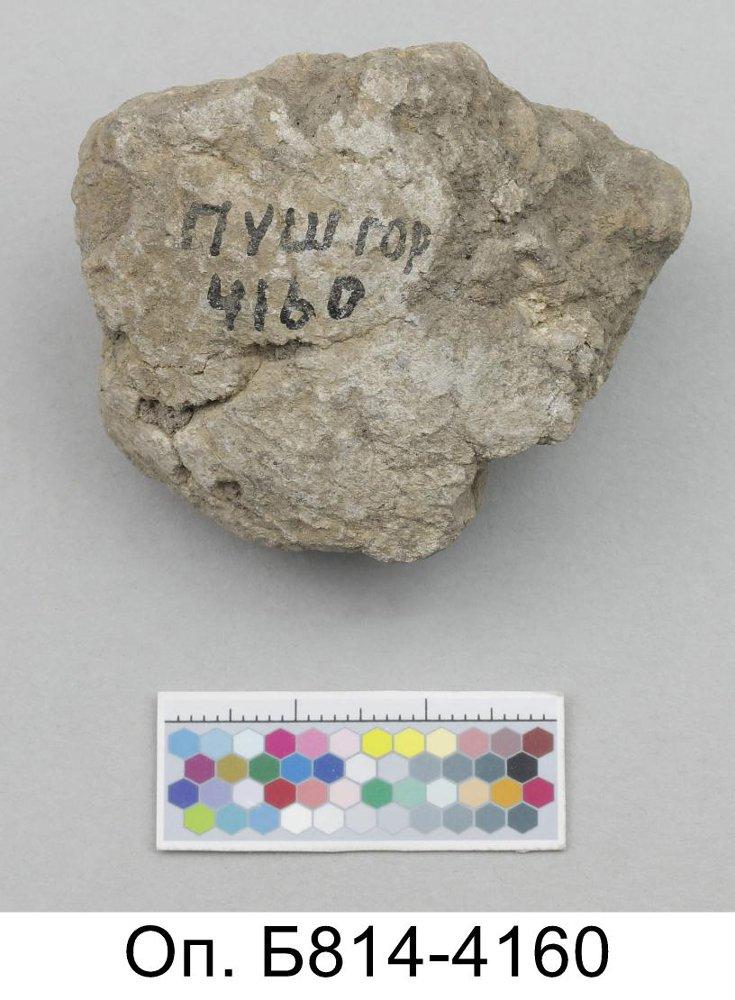 ПУШ ГОР
4160
Оп. Б814-4160